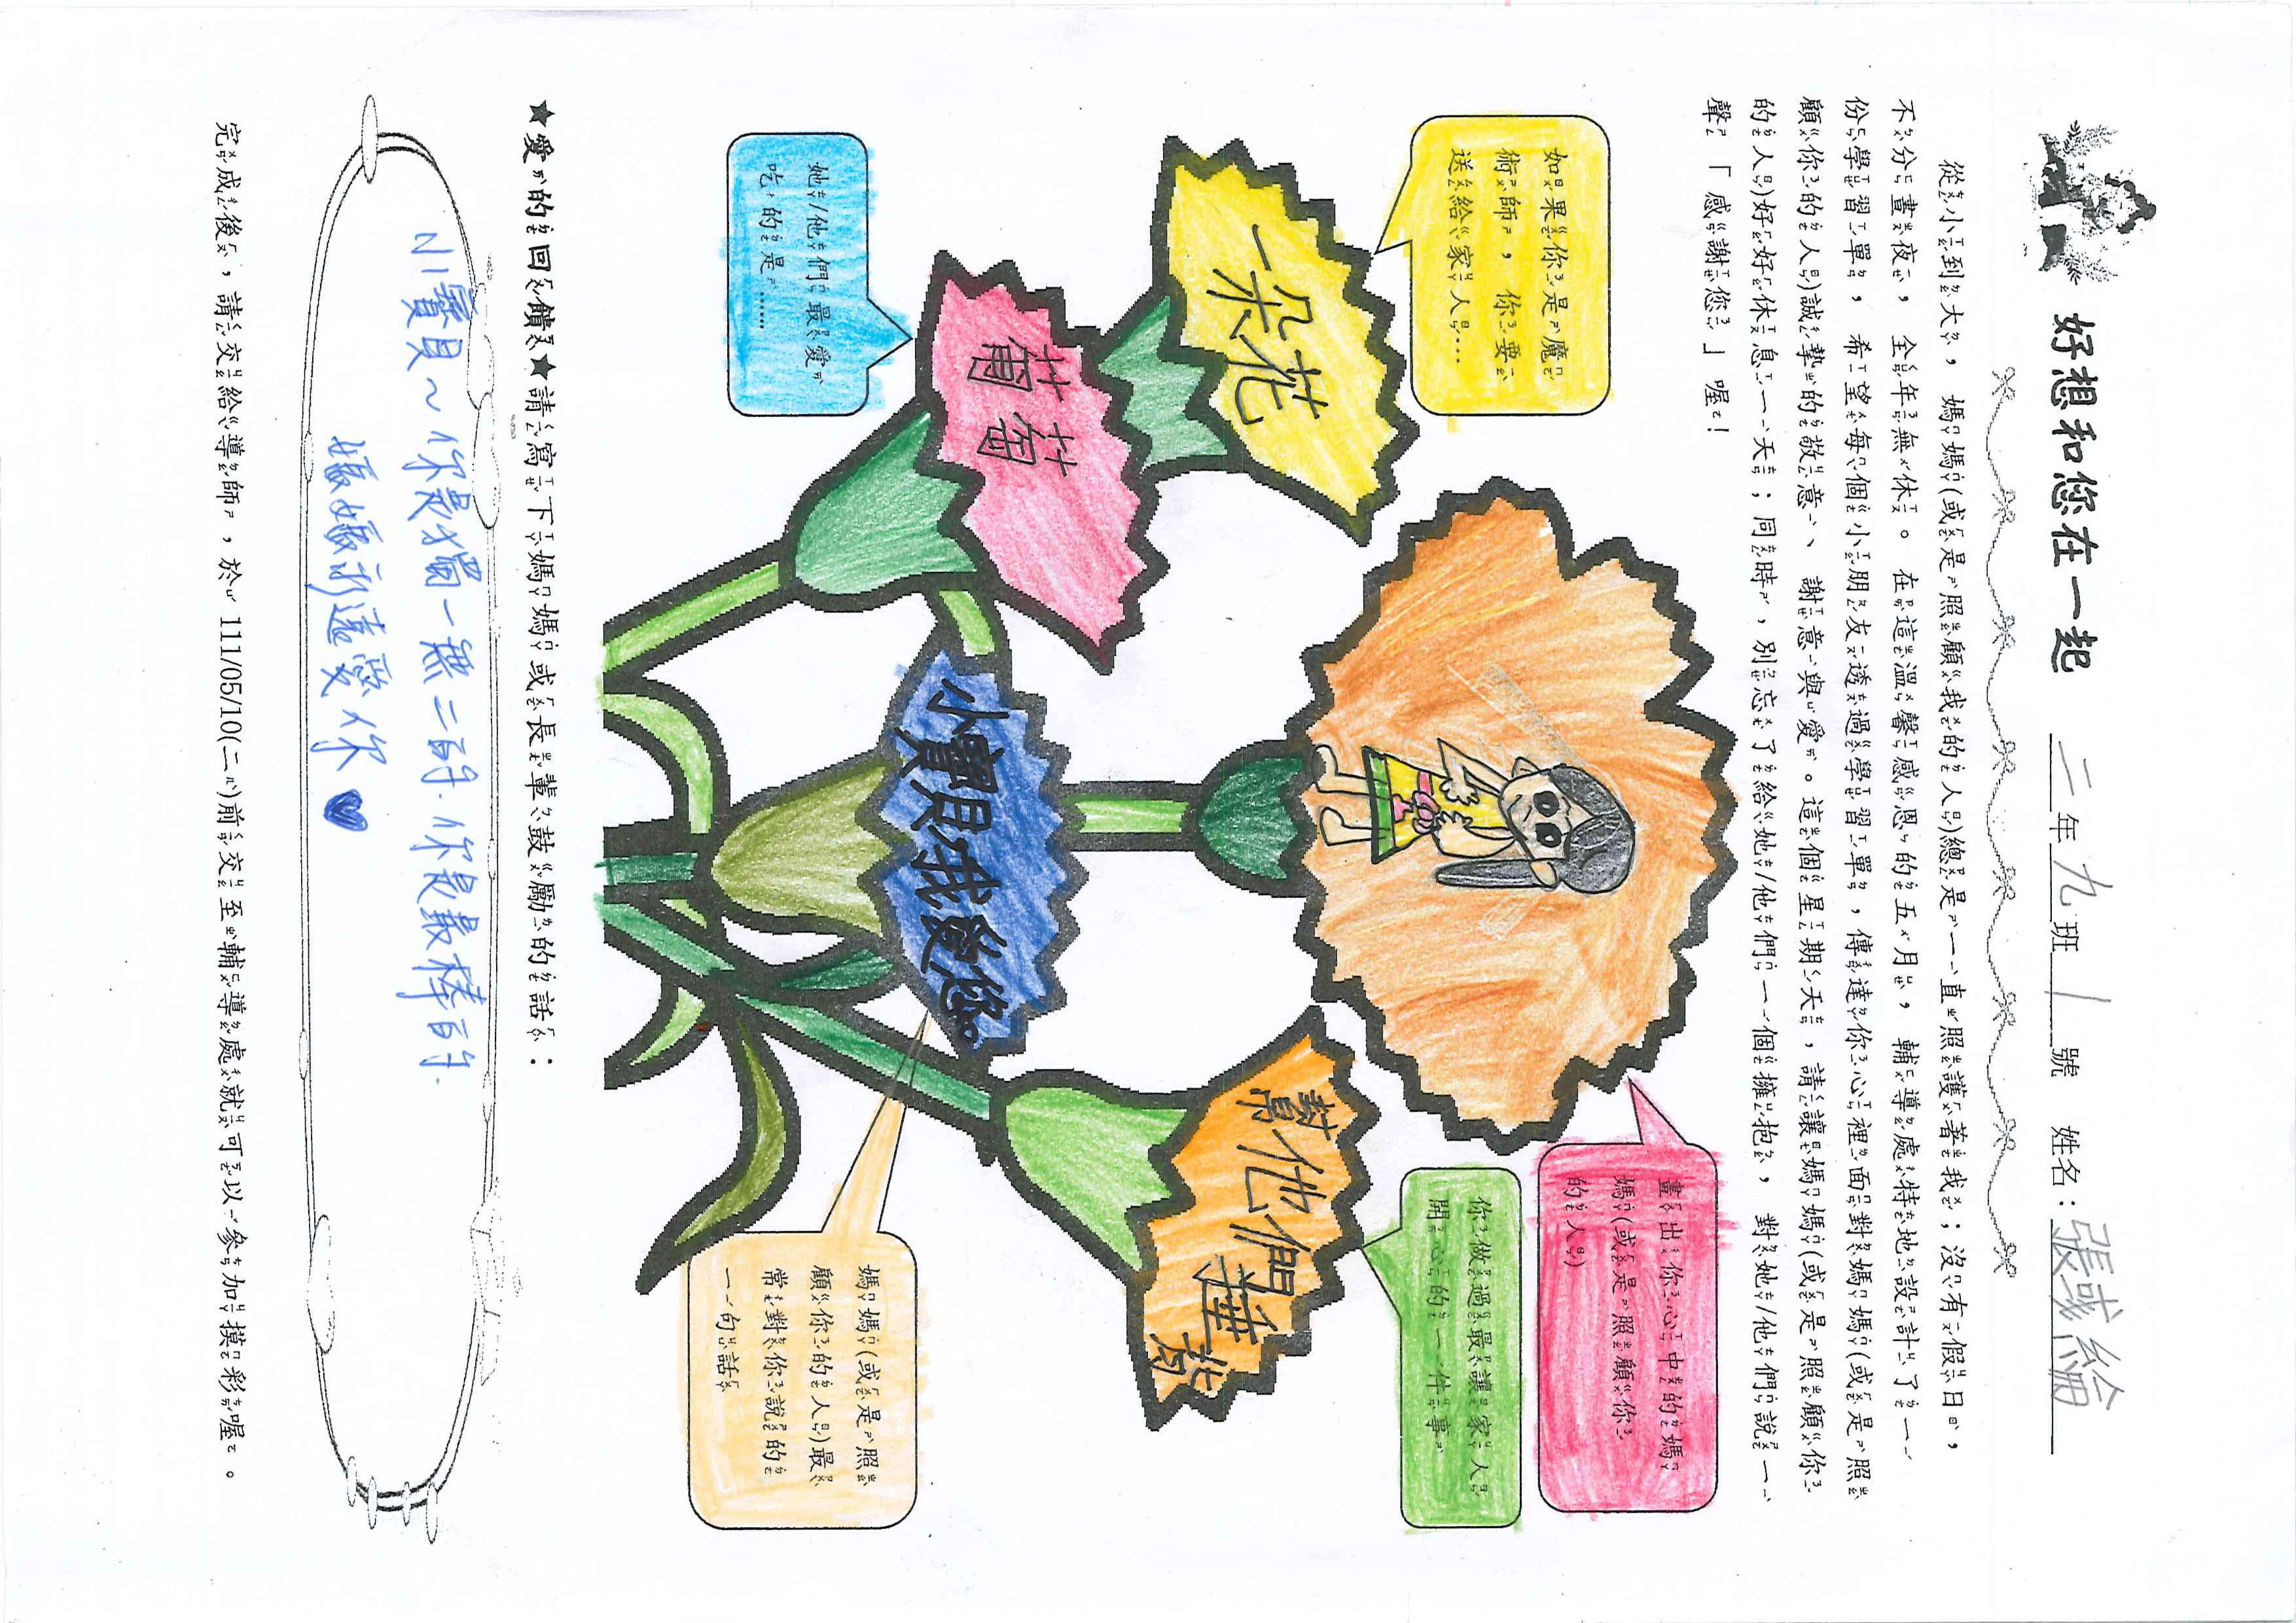 好想和您在一起 二年九班 1 號 姓名：張彧綸
從小到大，媽媽(或是照顧我的人)總是一直照護著我；沒有假日，
不分晝夜，全年無休。在這溫馨感恩的五月，輔導處特地設計了一
份學習單，希望每個小朋友透過學習單，傳達你心裡面對媽媽(或是照
顧你的人)誠摯的敬意、謝意與愛。這個星期天，請讓媽媽(或是照顧你
的人)好好休息一天；同時，別忘了給她/他們一個擁抱，對她/他們說一
聲「感謝您」喔！
如果你是魔
術師，你要
送給家人…
一朵花
畫出你心中的媽
媽(或是照顧你
的人)
你做過最讓家人
開心的一件事
幫他們捶背
她/他們最愛
吃的是……
葡萄
小寶貝我愛您。
媽媽(或是照
顧你的人)最
常對你說的
一句話
★愛的回饋★請寫下媽媽或長輩鼓勵的話：
寶貝～你是獨一無二的．你是最棒的．
媽媽永遠愛你♥
完成後，請交給導師，於 111/05/10(二)前交至輔導處就可以參加摸彩喔。